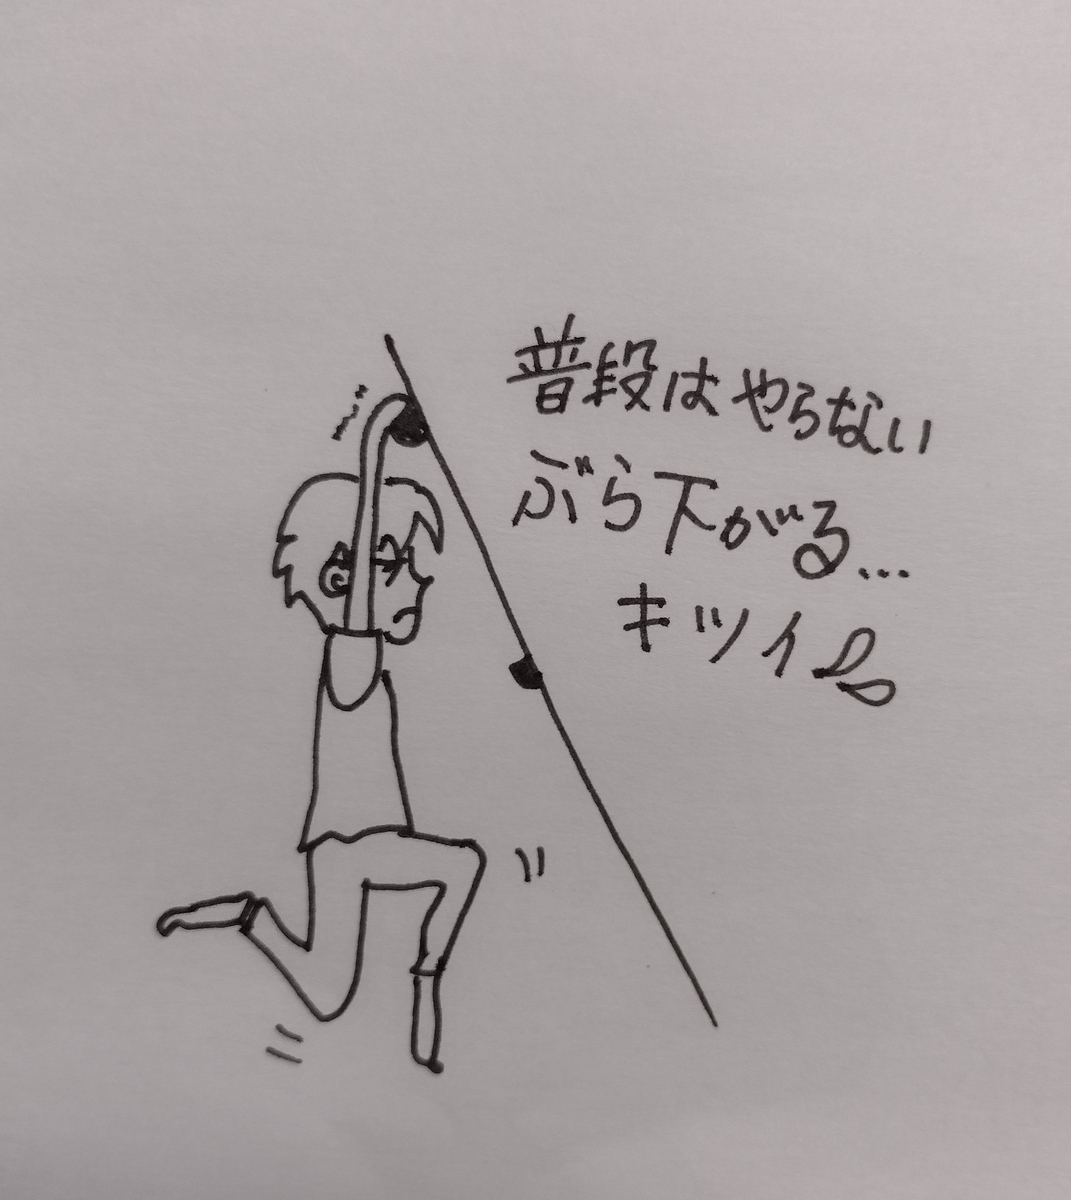 普段はやらない
ぶら下がる...
キツイ